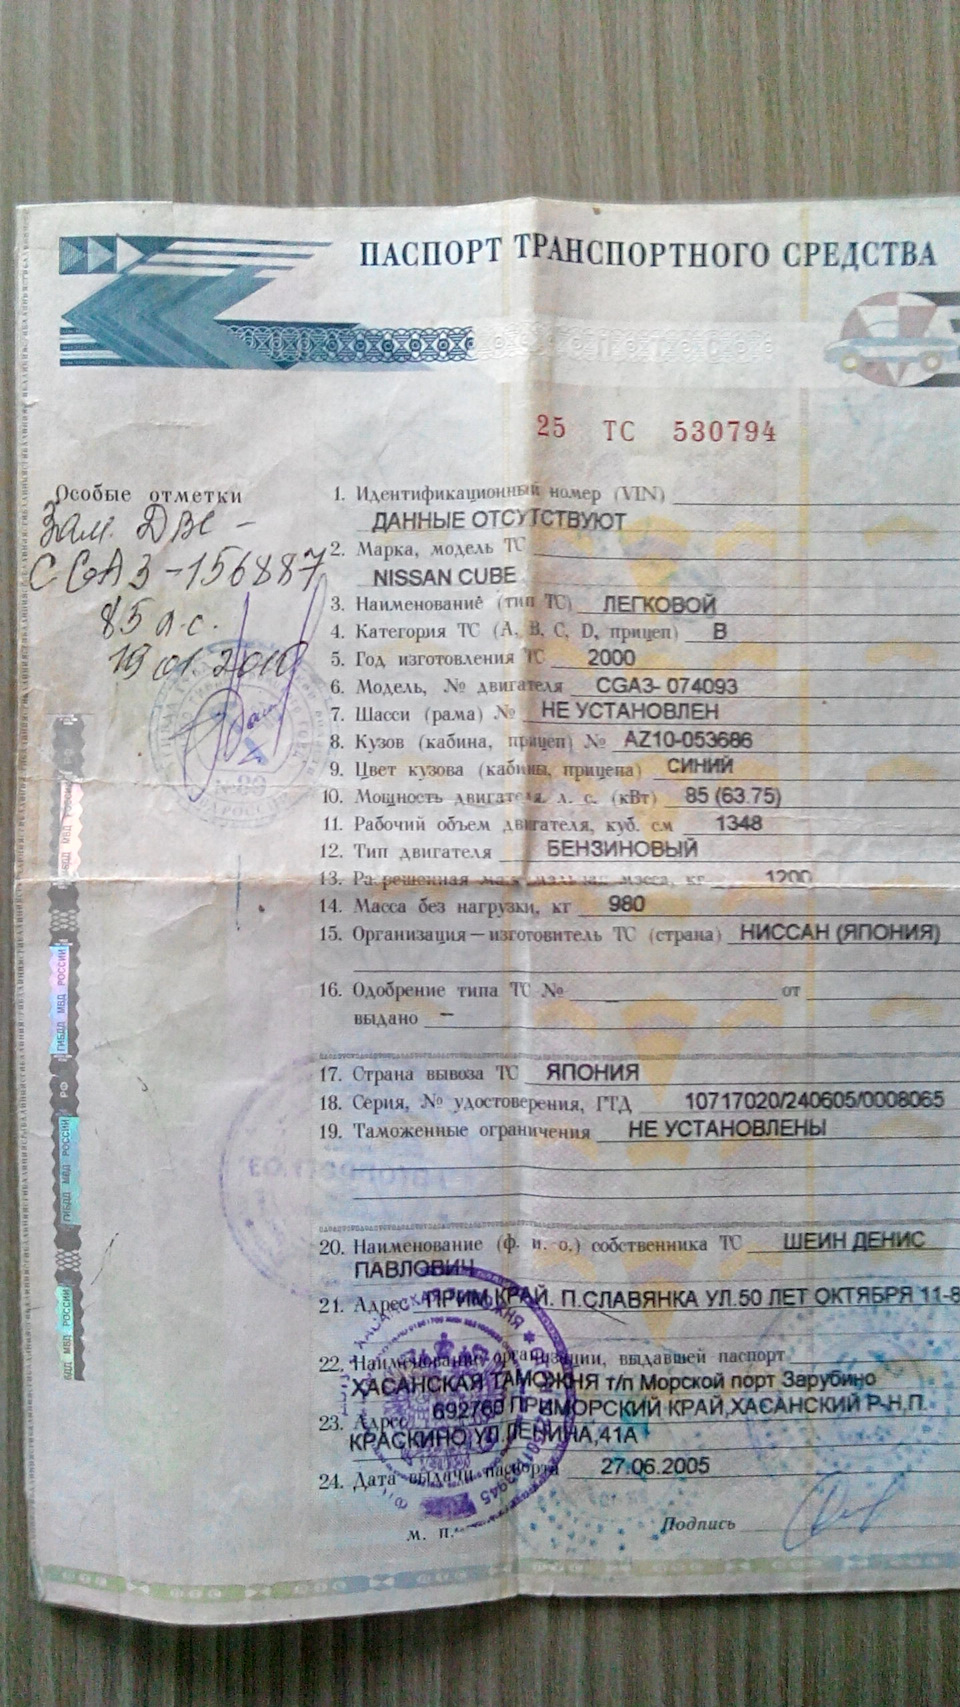 ПАСПОРТ ТРАНСПОРТНОГО СРЕДСТВА
25 ТС 530794
Особые отметки
Зам. ДВС -
CGA3-156887
85 л.с.
19 01.2010
1. Идентификационный номер (VIN)
ДАННЫЕ ОТСУТСТВУЮТ
2. Марка, модель ТС
NISSAN CUBE
3. Наименование (тип ТС) ЛЕГКОВОЙ
4. Категория ТС (A, B, C, D, прицеп) B
5. Год изготовления ТС 2000
6. Модель, № двигателя CGA3- 074093
7. Шасси (рама) № НЕ УСТАНОВЛЕН
8. Кузов (кабина, прицеп) № AZ10-053686
9. Цвет кузова (кабины, прицепа) СИНИЙ
10. Мощность двигателя, л. с. (кВт) 85 (63.75)
11. Рабочий объем двигателя, куб. см 1348
12. Тип двигателя БЕНЗИНОВЫЙ
13. Разрешенная максимальная масса, кг 1200
14. Масса без нагрузки, кг 980
15. Организация—изготовитель ТС (страна) НИССАН (ЯПОНИЯ)
16. Одобрение типа ТС № от
выдано –
17. Страна вывоза ТС ЯПОНИЯ
18. Серия, № удостоверения, ГТД 10717020/240605/0008065
19. Таможенные ограничения НЕ УСТАНОВЛЕНЫ
20. Наименование (ф. и. о.) собственника ТС ШЕИН ДЕНИС
ПАВЛОВИЧ
21. Адрес ПРИМ.КРАЙ. П.СЛАВЯНКА УЛ.50 ЛЕТ ОКТЯБРЯ 11-8
22. Наименование организации, выдавшей паспорт
ХАСАНСКАЯ ТАМОЖНЯ т/п Морской порт Зарубино
23. Адрес 692760 ПРИМОРСКИЙ КРАЙ,ХАСАНСКИЙ Р-Н,П.
КРАСКИНО,УЛ.ЛЕНИНА,41А
24. Дата выдачи паспорта 27.06.2005
м. п.
Подпись
ГИБДД МВД РОССИИ
РФ
ГИБДД МВД РОССИИ